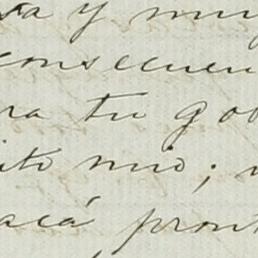 y muy
consecuen
ra tu gob
ito mio;
acá pront